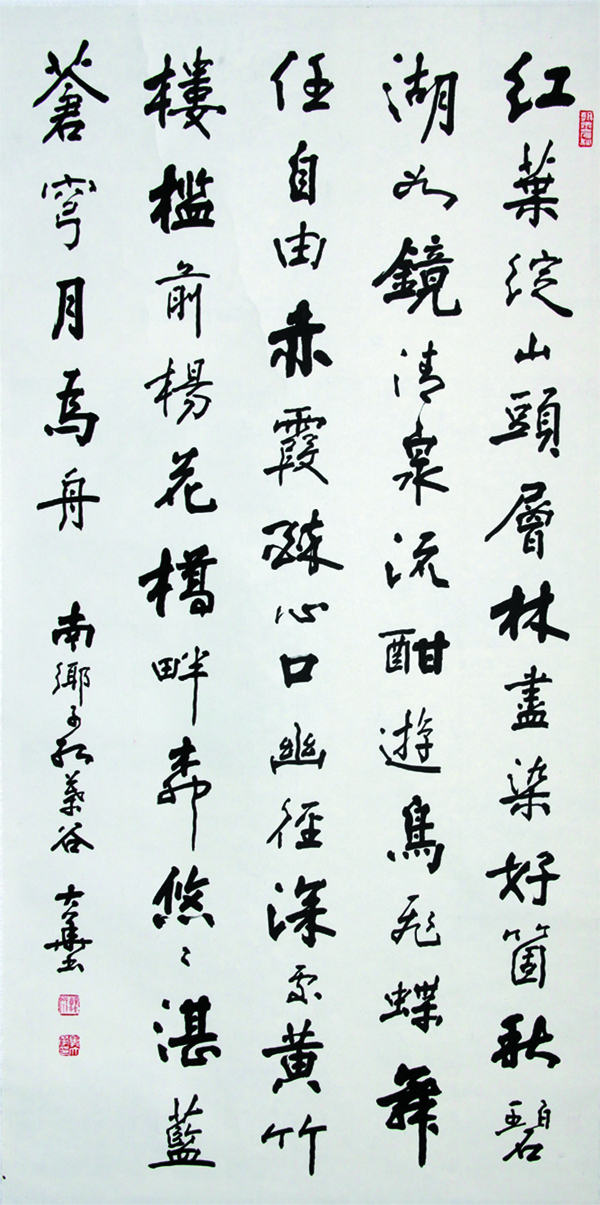 紅葉綻山頭層林盡染好箇秋碧
湖如鏡清泉流酣遊鳥飛蝶舞
任自由赤霞踈心口幽徑深處黃竹
樓檻前楊花樽畔柳悠〻湛藍
蒼穹月為舟
南鄉子紅葉谷 大華書